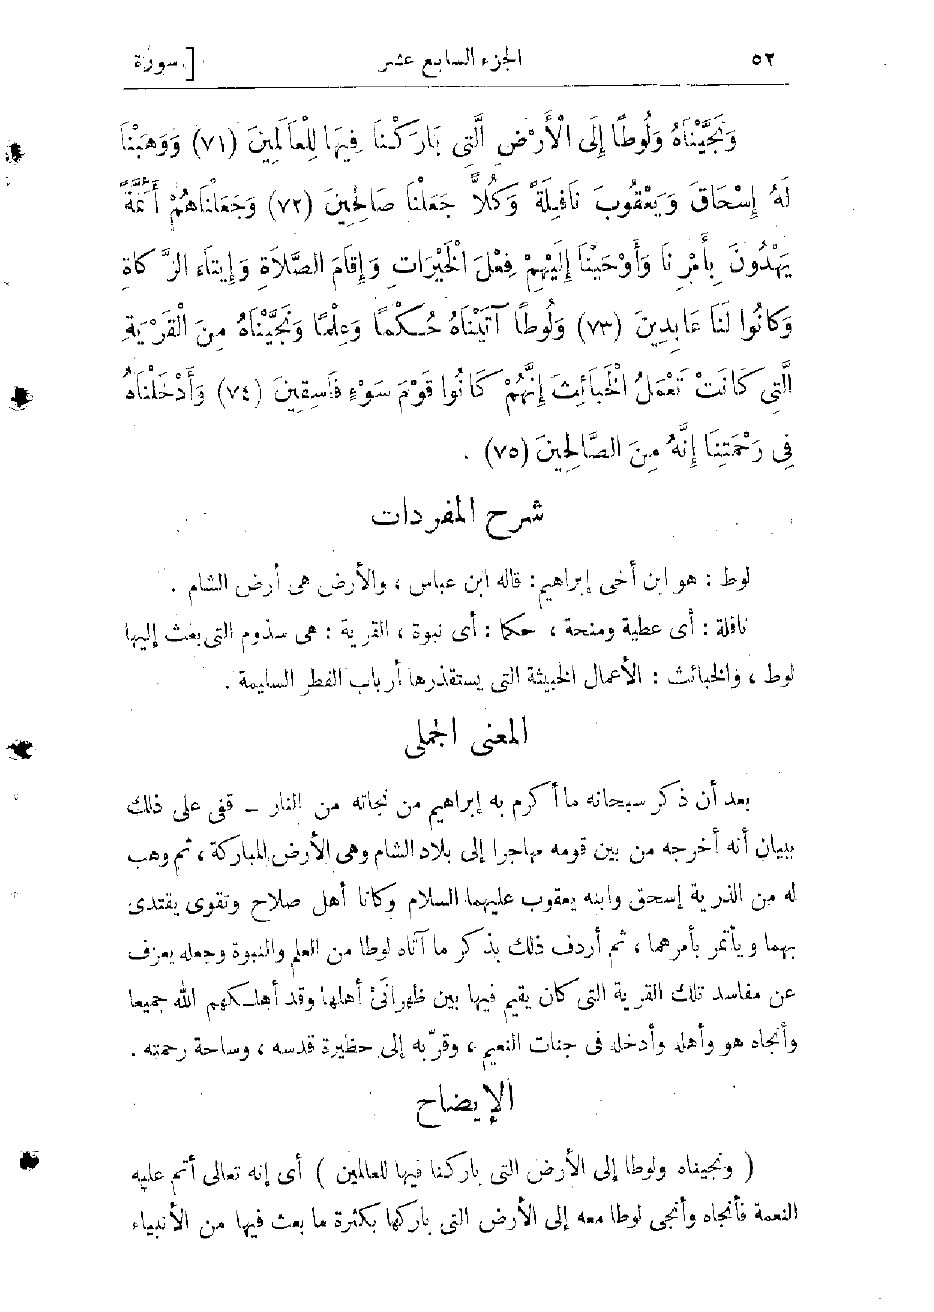 ٥٢ الجزء السابع عشر [ سورة
وَنَجَّيْنَاهُ وَلُوطًا إِلَى الْأَرْضِ الَّتِى بَارَكْنَا فِيهَا لِلْعَالَمِينَ (٧١) وَوَهَبْنَا
لَهُ إِسْحَاقَ وَيَعْقُوبَ نَافِلَةً وَكُلاًّ جَعَلْنَا صَالِحِينَ (٧٢) وَجَعَلْنَاهُمْ أَئِمَّةً
يَهْدُونَ بِأَمْرِنَا وَأَوْحَيْنَا إِلَيْهِمْ فِعْلَ الْخَيْرَاتِ وَإِقَامَ الصَّلَاةِ وَإِيتَاءَ الزَّكَاةِ
وَكَانُوا لَنَا عَابِدِينَ (٧٣) وَلُوطًا آتَيْنَاهُ حُكْمًا وَعِلْمًا وَنَجَّيْنَاهُ مِنَ الْقَرْيَةِ
الَّتِى كَانَتْ تَعْمَلُ الْخَبَائِثَ إِنَّهُمْ كَانُوا قَوْمَ سَوْءٍ فَاسِقِينَ (٧٤) وَأَدْخَلْنَاهُ
فِى رَحْمَتِنَا إِنَّهُ مِنَ الصَّالِحِينَ (٧٥) .
شرح المفردات
لوط : هو ابن أخى إبراهيم : قاله ابن عباس ، والأرض هى أرض الشام .
نافلة : أى عطية ومنحة ، حكما : أى نبوة ، القرية : هى سذوم التى بعث إليها
لوط ، والخبائث : الأعمال الخبيثة التى يستقذرها أرباب الفطر السليمة .
المعنى الجملى
بعد أن ذكر سبحانه ما أكرم به إبراهيم من نجاته من النار – قفى على ذلك
ببيان أنه أخرجه من بين قومه مهاجرا إلى بلاد الشام وهى الأرض المباركة ، ثم وهب
له من الذرية إسحق وابنه يعقوب عليهما السلام وكانا أهل صلاح وتقوى يقتدى
بهما ويأتمر بأمرهما ، ثم أردف ذلك بذكر ما آتاه لوطا من العلم والنبوة وجعله يعزف
عن مفاسد تلك القرية التى كان يقيم فيها بين ظهرانَىْ أهلها وقد أهلكهم الله جميعا
وأنجاه هو وأهله وأدخله فى جنات النعيم ، وقرّبه إلى حظيرة قدسه ، وساحة رحمته .
الإيضاح
( ونجيناه ولوطا إلى الأرض التى باركنا فيها للعالمين ) أى إنه تعالى أتم عليه
النعمة فأنجاه وأنجى لوطا معه إلى الأرض التى باركها بكثرة ما بعث فيها من الأنبياء